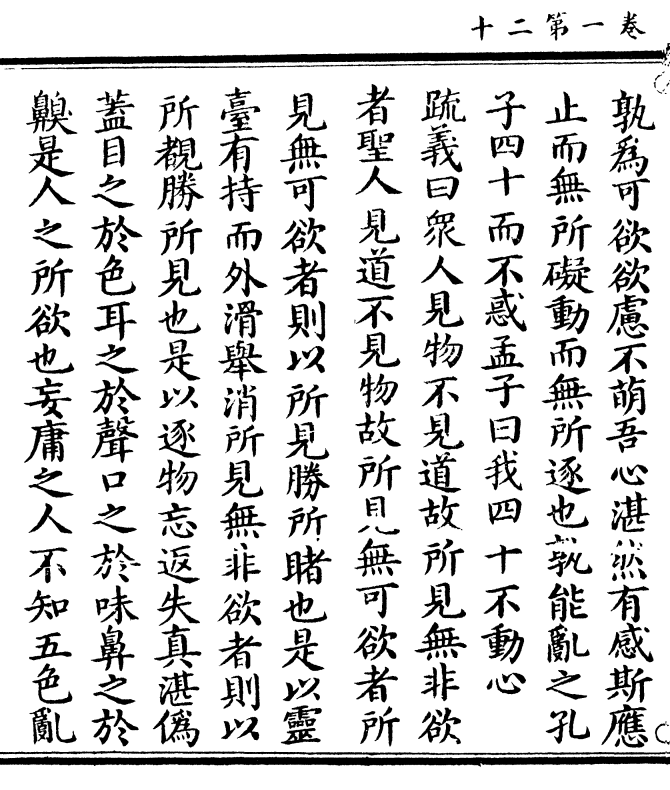 十二第一卷
孰為可欲欲慮不萌吾心湛然有感斯應
止而無所礙動而無所逐也孰能亂之孔
子四十而不惑孟子曰我四十不動心
疏義曰衆人見物不見道故所見無非欲
者聖人見道不見物故所見無可欲者所
見無可欲者則以所見勝所睹也是以靈
臺有持而外滑舉消所見無非欲者則以
所觀勝所見也是以逐物忘返失真湛僞
蓋目之於色耳之於聲口之於味鼻之於
臭是人之所欲也妄庸之人不知五色亂